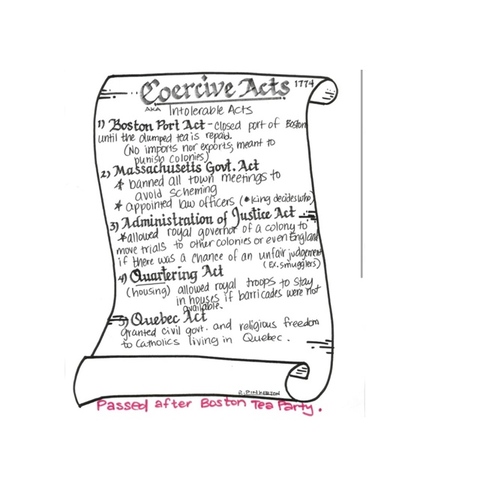 Coercive Acts 1774
AKA Intolerable Acts
1) Boston Port Act - closed port of Boston
until the dumped tea is repaid.
(No imports nor exports; meant to
punish colonies)
2) Massachusetts Govt. Act
* banned all town meetings to
avoid scheming
* appointed law officers (*King decides who)
3) Administration of Justice Act
*allowed royal governor of a colony to
move trials to other colonies or even England
if there was a chance of an unfair judgement
(Ex. smugglers)
4) Quartering Act
(housing) allowed royal troops to stay
in houses if barricades were not
available.
5) Quebec Act
Granted civil govt. and religious freedom
to Catholics living in Quebec.
Passed after Boston Tea Party.